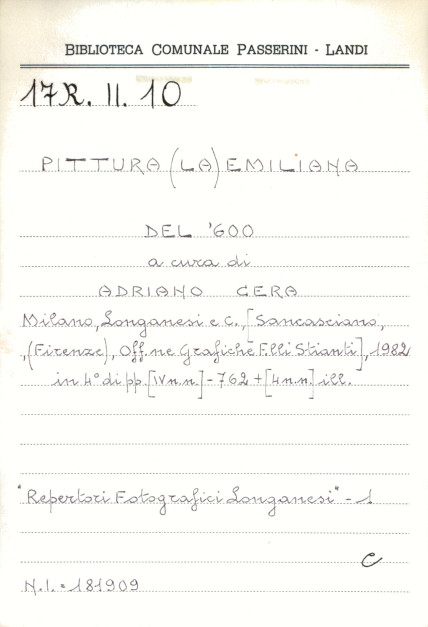 BIBLIOTECA COMUNALE PASSERINI - LANDI
17R. II. 10
PITTURA (LA) EMILIANA
DEL '600
a cura di
ADRIANO CERA
Milano, Longanesi e C., [Sancasciano,
,(Firenze), Off.ne Grafiche F.lli Stianti], 1982
in 4° di pp. [IV n.n.] - 762 + [4 n.n.] ill.
"Repertori Fotografici Longanesi" - 1
C
N.I. = 181909